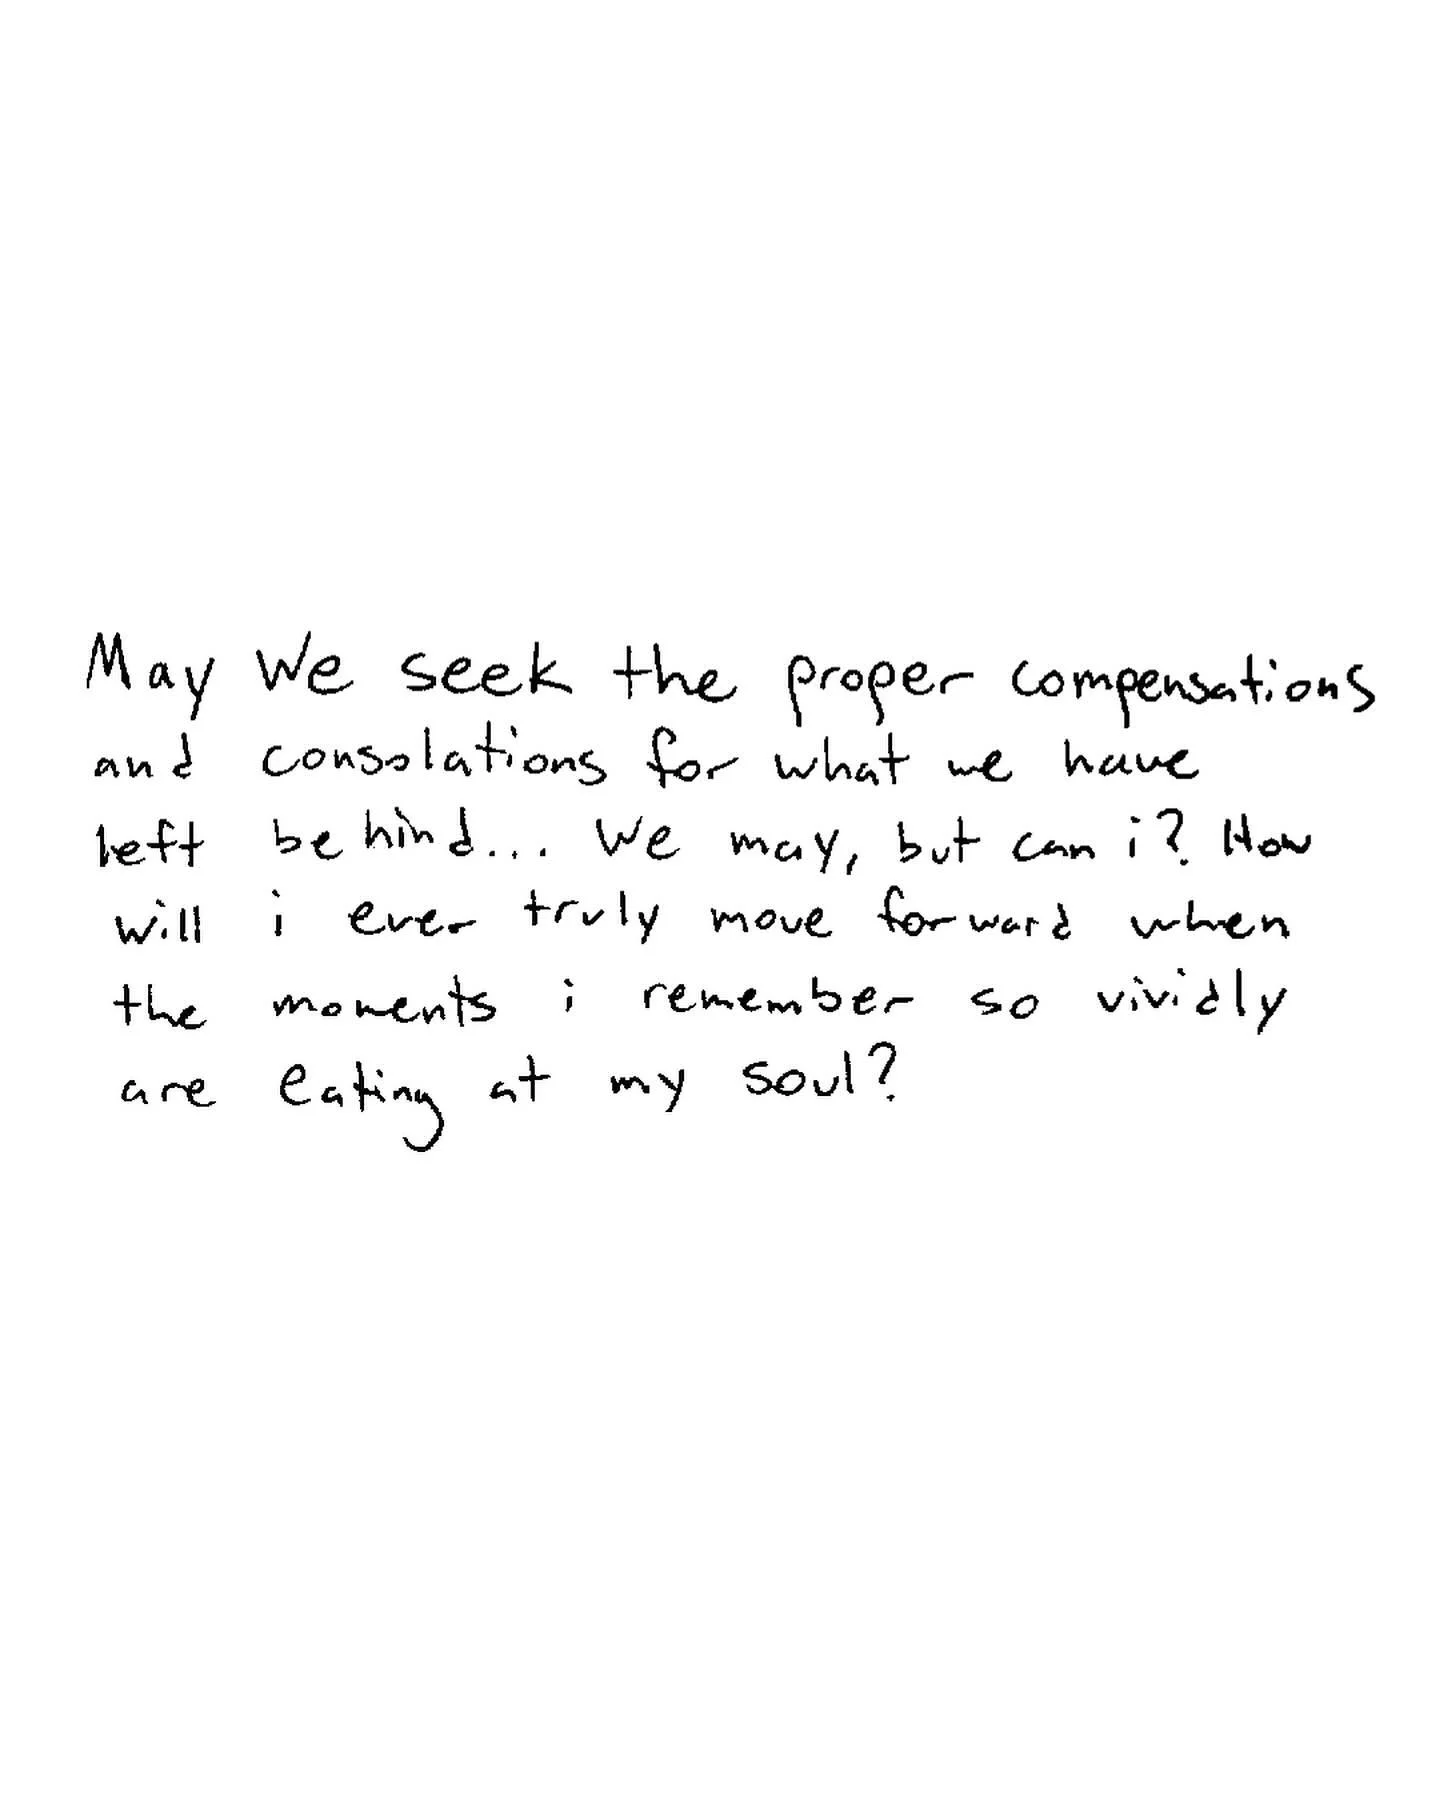 May We seek the proper compensations
and consolations for what we have
left behind... We may, but can i? How
will i ever truly move forward when
the moments i remember so vividly
are eating at my soul?